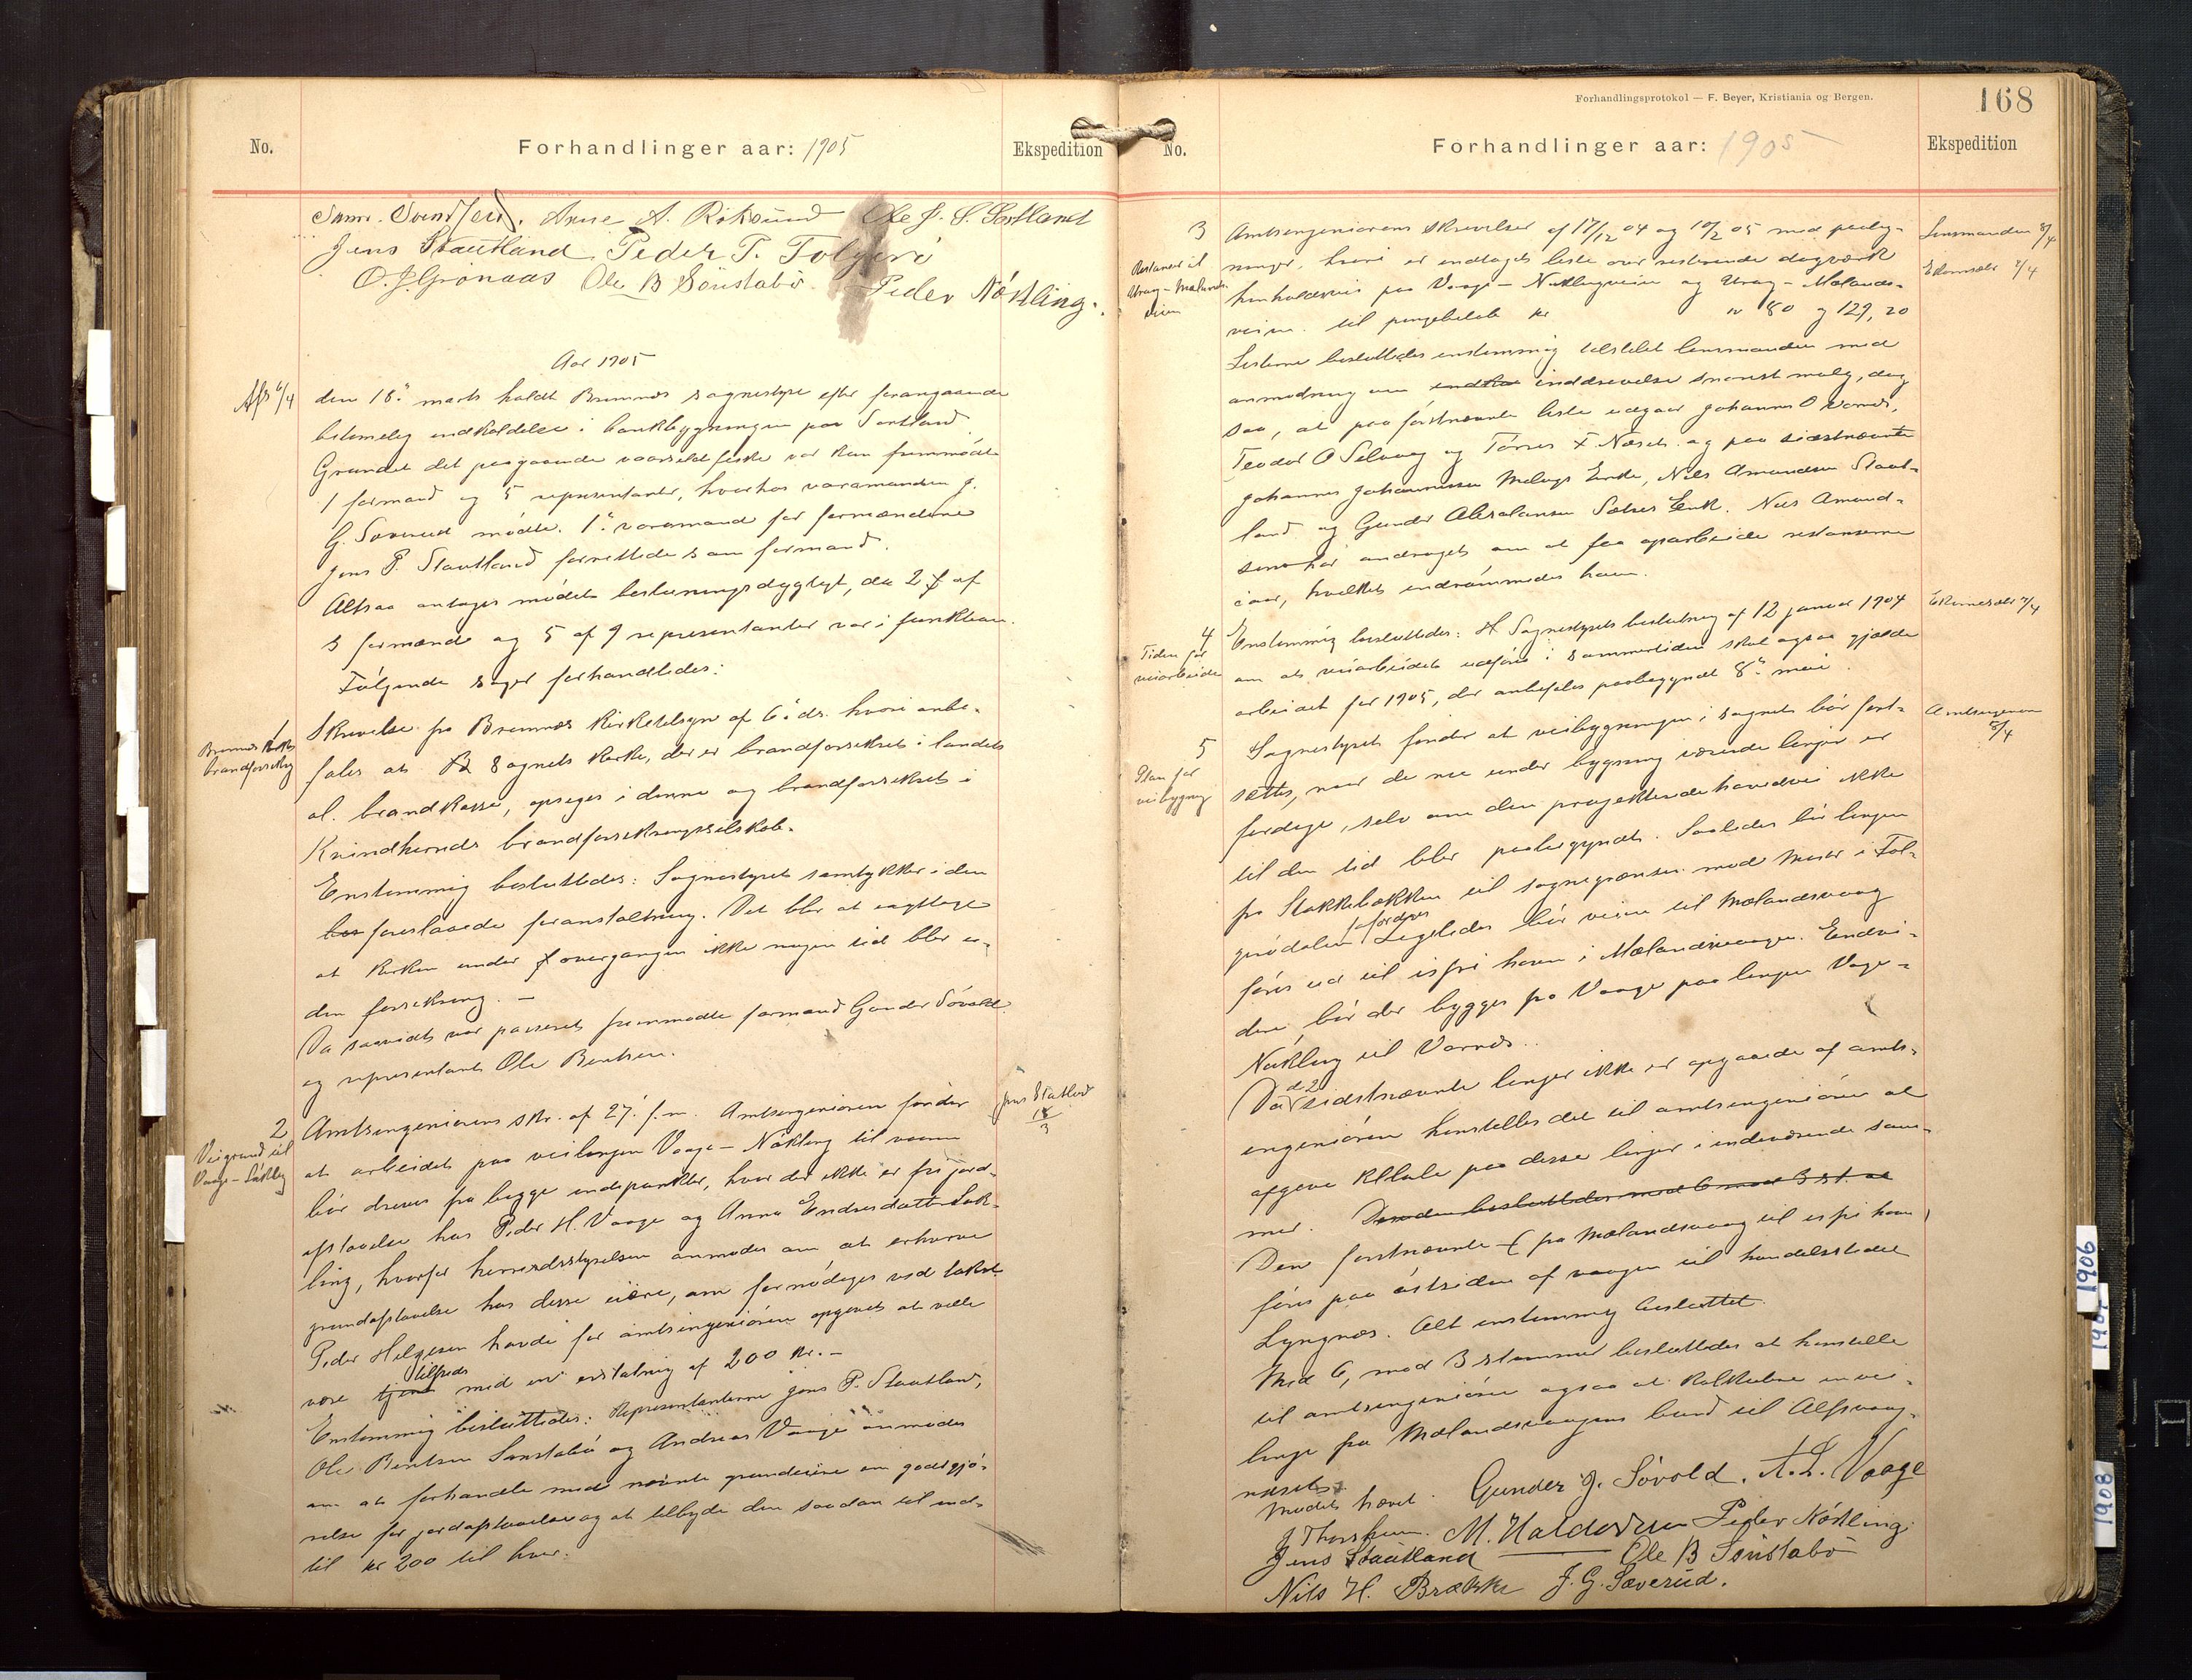 No.
Forhandlinger aar: 1905
Ekspedition
Arne A. Roksund Ole J. S. Sortland
Jens Stautland Peder T. Folgerö
O. J. Grönaas Ole B Sönstabö Peder Nökling.
Aar 1905
Afs 6/4
den 18. marts holdt Bremnes sognestyre efter forangaaende
betimelig indkaldelse i bankbygningen paa Sortland.
Grundet det paagaaende vaarsildfiske var kun fremmödt
1 formand og 5 representanter, hvorhos varamanden J.
G. Sæverud mødte. 1. varamand for formændene
Jens P. Stautland forrettede som formand.
Altsaa antages mødet beslutningsdygtigt, da 2 af
3 formænd og 5 af 9 representanter var i funktion.
Følgende sager forhandledes:
1
Bremnes kirkes
brandforsikring
Skrivelse fra Bremnes kirketilsyn af 6. ds. hvori anbe-
fales at sognets kirke, der er brandforsikret i landets
al. brandkasse, opsiges i denne og brandforsikret i
Kvindherreds brandforsikringsselskab.
Enstemmig besluttedes: Sognestyret samtykker i den
foreslaaede foranstaltning. Det blir at iagttage
at kirken under overgangen ikke nogen tid blir u-
den forsikring. –
Da saavidt var passeret fremmødte formand Gunder Søvold
og representant Ole Bentsen.
2
Veigrund til
Vaage-Nökling
Jens Stautland
18/3
Amtsingeniørens skr. af 27. f.m. Amtsingeniøren finder
at arbeidet paa veilinjen Vaage – Nökling til vaaren
bør drives fra begge endepunkter, hvor der ikke er fri jord-
afstaaelse hos Peder H. Vaage og Anna Endresdatter Nøk-
ling, hvorfor herredsstyrelsen anmodes om at erhverve
grundafstaaelse hos disse eiere, om fornødiges ved takst.
Peder Helgesen havde for amtsingeniøren opgivet at ville
være tilfreds med en erstatning af 200 kr. –
Enstemmig besluttedes: Representanterne Jens P. Stautland,
Ole Bentsen Sønstabø og Andreas Vaage anmodes
om at forhandle med nævnte grundeiere om godtgjø-
relse for jordafstaaelse og at tilbyde den saadan til ind-
til kr 200 til hver.
Forhandlingsprotokol — F. Beyer, Kristiania og Bergen.
168
No.
Forhandlinger aar: 1905
Ekspedition
3
Restancer til
Urang-Mælands-
veien
Lensmanden 8/4
Amtsingeniørens skrivelser af 17/12 04 og 10/2 05 med paateg-
ninger, hvori er indtaget liste over resterende dagværk
henholdsvis paa Vaage – Nøklingveien og Urang – Mælands-
veien til pengebeløb kr 80 og 129,20
Listerne besluttedes enstemmig tilstillet lensmanden med
anmodning om inddrivelse snarest mulig, dog
saa, at paa førstnævnte liste udgaar Johannes O Varnes,
Teodor O Selvaag og Tørres T Næset og paa sidstnævnte
Johannes Johannessen Melings Enke, Nils Amundsen Staut-
land og Gunder Absalonsen Sætres Enk. Nils Amund-
sen har andraget om at faa oparbeide restanserne
iaar, hvilket indrømmedes ham.
4
Tiden for
veiarbeide
Enstemmig besluttedes: H Sognestyrets beslutning af 12 januar 1904
om at veiarbeidet udføres i sommertiden skal ogsaa gjælde
arbeidet for 1905, der anbefales paabegyndt 8. mai.
5
Plan for
veibygning
Amtsingeniøren
5/4
Sognestyret finder at veibygningen i sognet bør fort-
sættes, naar de nu under bygning værende linjer er
færdige, selv om den projekterede hovedvei ikke
til den tid blir paabegyndt. Saaledes bør linjen
fra Stokkebækken til sognegrænsen mod Moster i Fol-
grødalen Ligeledes bør veien til Mælandsvaag
føres ud til isfri havn i Mælandsvaagen. Endvi-
dere bør der bygges fra Vaage paa linjen Vaage-
Nøkling til Varnes.
Da d 2 sidstnævnte linjer ikke er opgaaede af amts-
ingeniøren henstilles det til amtsingeniøren at
afgive kltale paa disse linjer i indeværende som-
mer. Desuden besluttedes med 6 mod 3 st. at
Den førstnævnte (fra Mælandsvaag til isfri havn)
føres paa østsiden af vaagen til handelsstedet
Lyngnes. Alt enstemmig besluttet.
Med 6, mod 3 stemmer besluttedes at henstille
til amtsingeniøren ogsaa at kalkulere en vei-
linje fra Mælandsvaagens bund til Alfsvaag-
næset.
Mødet hævet. Gunder J. Sövold. A. L. Vaage
J Thorsheim. M. Haldorsen Peder Nökling
Jens Stautland Ole B Sönstabö
Nils H. Brække J. G. Sæverud.
1906
1908